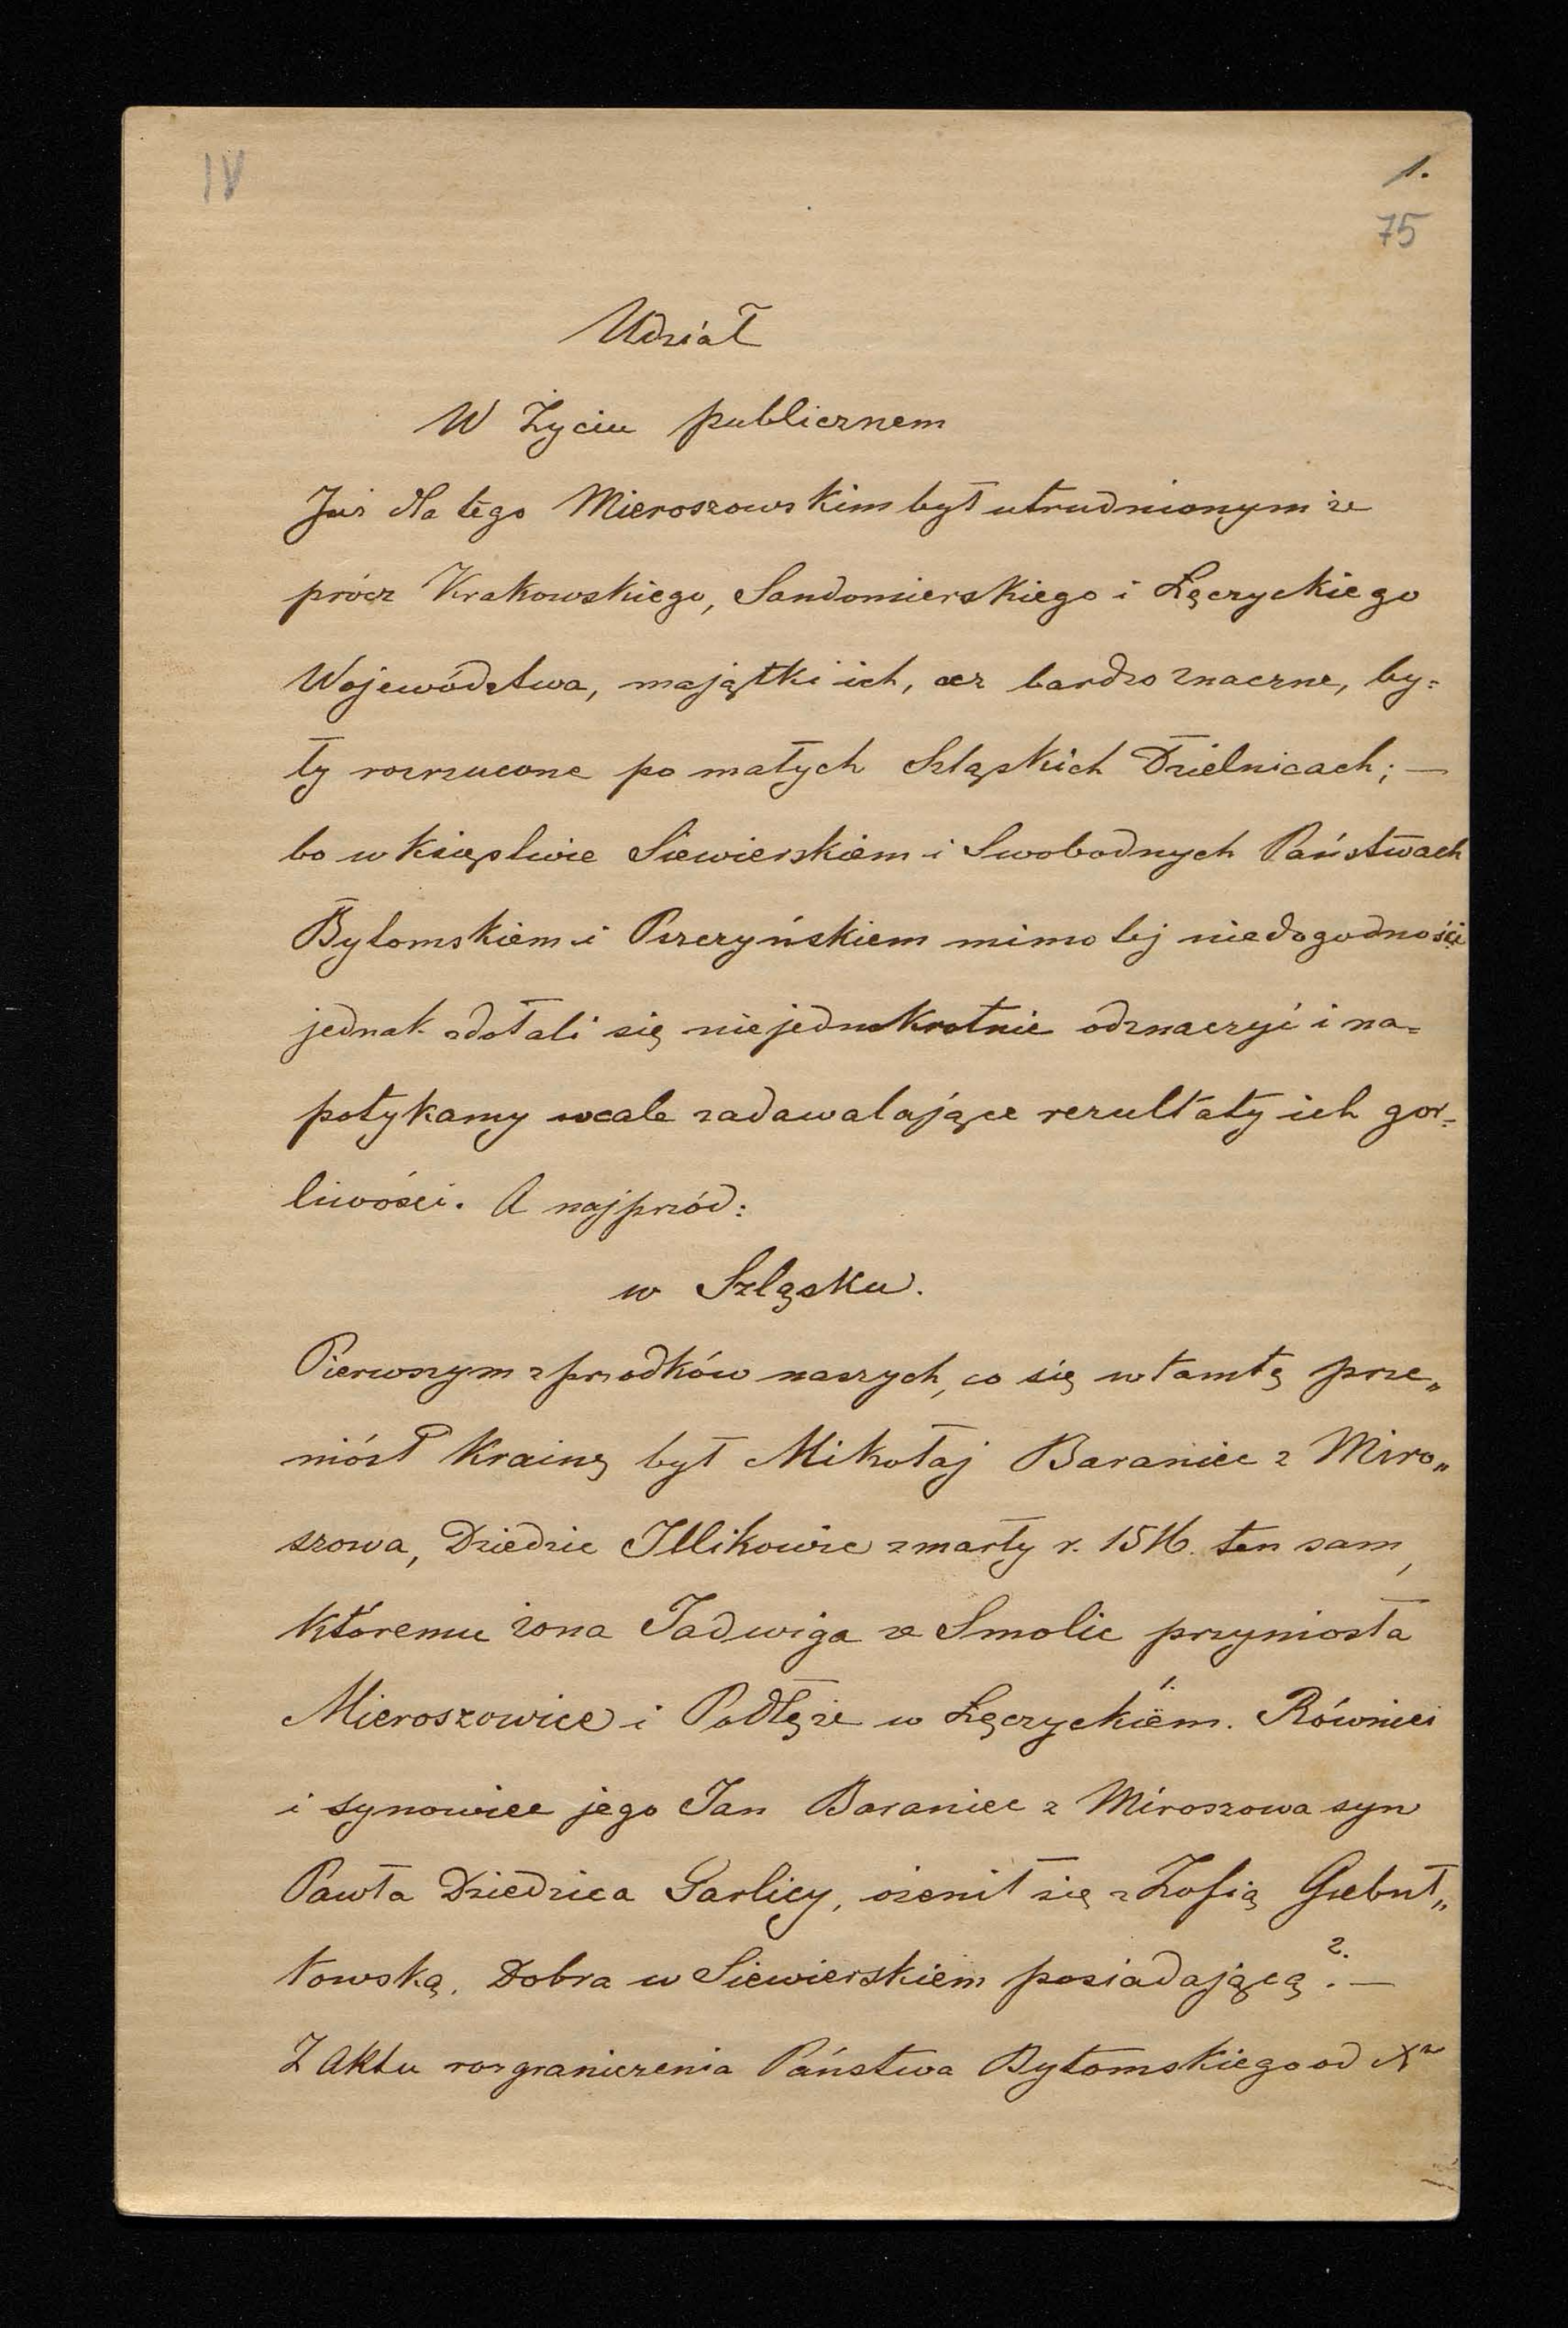 IV
1.
75
Udział
W Życiu publicznem
Już dla tego Mieroszowskim był utrudnionym że
prócz Krakowskiego, Sandomierskiego i Łęczyckiego
Województwa, majątki ich, acz bardzo znaczne, by=
ły rozrzucone po małych Szląskich Dzielnicach; —
bo w księstwie Siewierskiem i Swobodnych Państwach
Bytomskiem i Pszczyńskiem mimo tej niedogodności
jednak zdołali się niejednokrotnie odznaczyć i na=
potykamy wcale zadawalające rezultaty ich gor=
liwości. A najprzód:
w Szląsku.
Pierwszym z przodków naszych, co się w tamtę prze„
niósł Krainę był Mikołaj Baraniec z Miro„
szowa, Dziedzic Illikowic zmarły r. 1516. ten sam,
któremu żona Jadwiga ze Smolic przyniosła
Mieroszowice i Podłęże w Łęczyckiém. 1. Również
i synowiec jego Jan Baraniec z Miroszowa syn
Pawła Dziedzica Garlicy, ożenił się z Zofią Giebuł„
towską, Dobra w Siewierskiem posiadającą 2. —
Z Aktu rozgraniczenia Państwa Bytomskiego od Xa